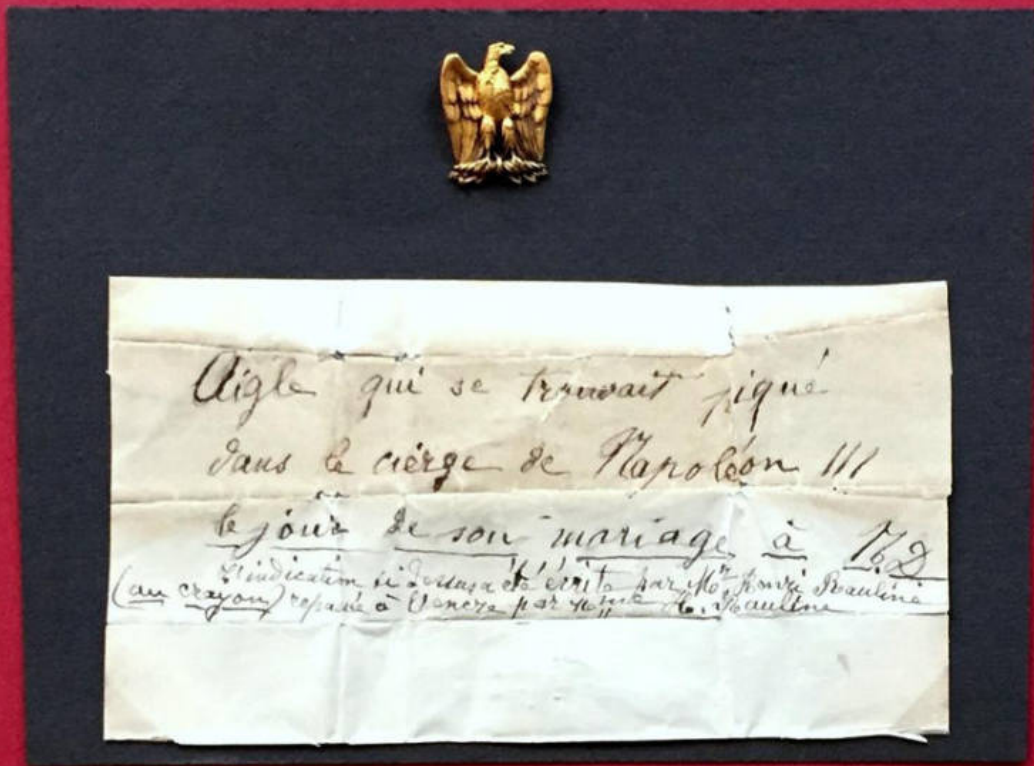 Aigle qui se trouvait piqué
dans le cierge de Napoléon III
le jour de son mariage à N.D
L'indication ci dessus a été écrite par Mr Henri Rauline
(au crayon) repassée à l'encre par Mme H. Rauline